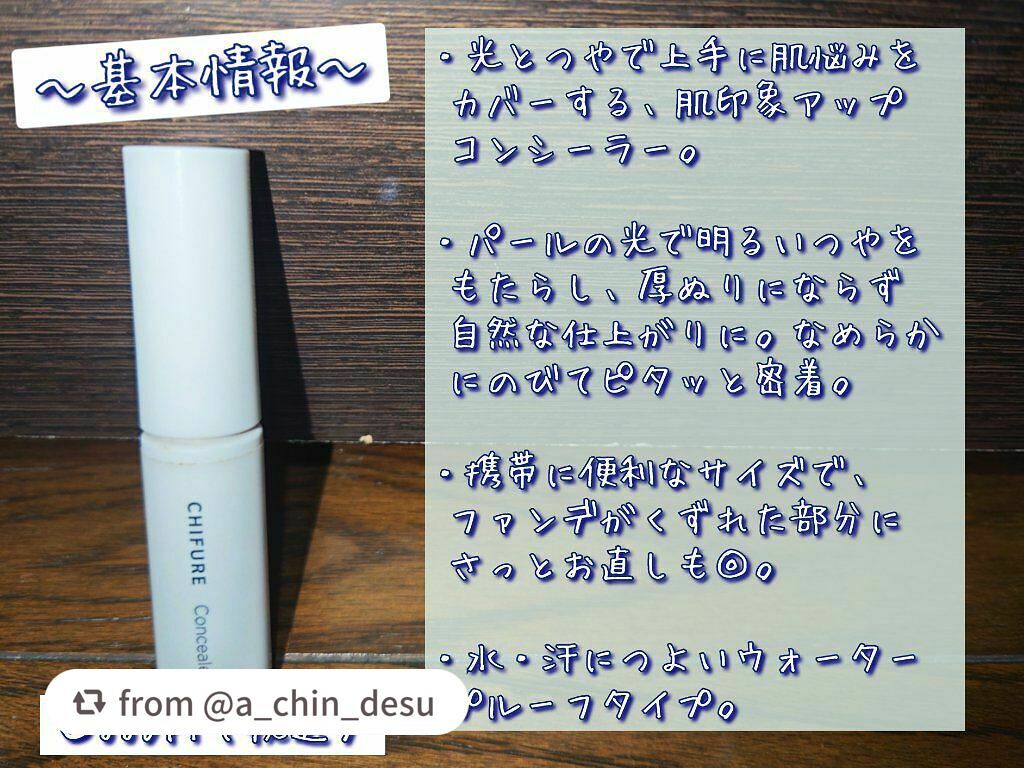 ～基本情報～
・光とつやで上手に肌悩みを
カバーする、肌印象アップ
コンシーラー。
・パールの光で明るいつやを
もたらし、厚ぬりにならず
自然な仕上がりに。なめらか
にのびてピタッと密着。
・携帯に便利なサイズで、
ファンデがくずれた部分に
さっとお直しも◎。
・水・汗につよいウォーター
プルーフタイプ。
CHIFURE Conceale
from @a_chin_desu